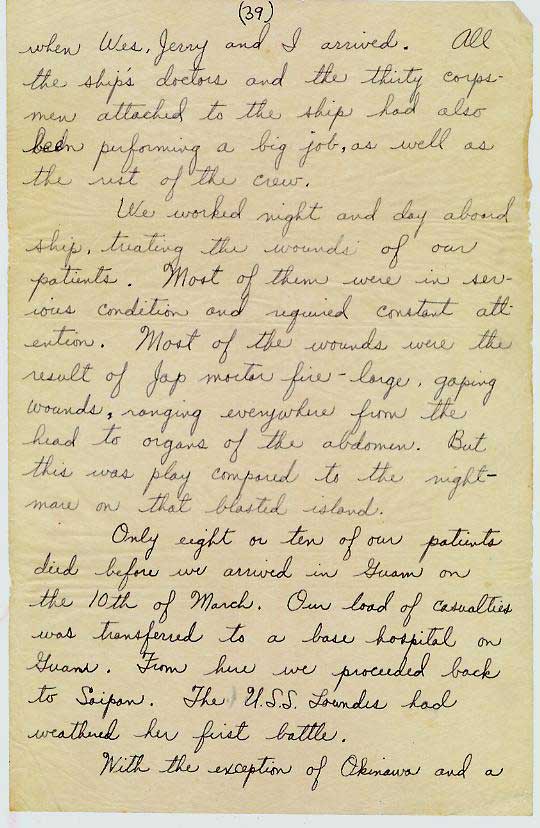 (39)
when Wes, Jerry and I arrived. All
the ship's doctors and the thirty corps-
men attached to the ship had also
been performing a big job, as well as
the rest of the crew.
We worked night and day aboard
ship, treating the wounds of our
patients. Most of them were in ser-
ious condition and required constant att-
ention. Most of the wounds were the
result of Jap mortar fire - large, gaping
wounds, ranging everywhere from the
head to organs of the abdomen. But
this was play compared to the night-
mare on that blasted island.
Only eight or ten of our patients
died before we arrived in Guam on
the 10th of March. Our load of casualties
was transferred to a base hospital on
Guam. From here we proceeded back
to Saipan. The U.S.S. Lowndes had
weathered her first battle.
With the exception of Okinawa and a